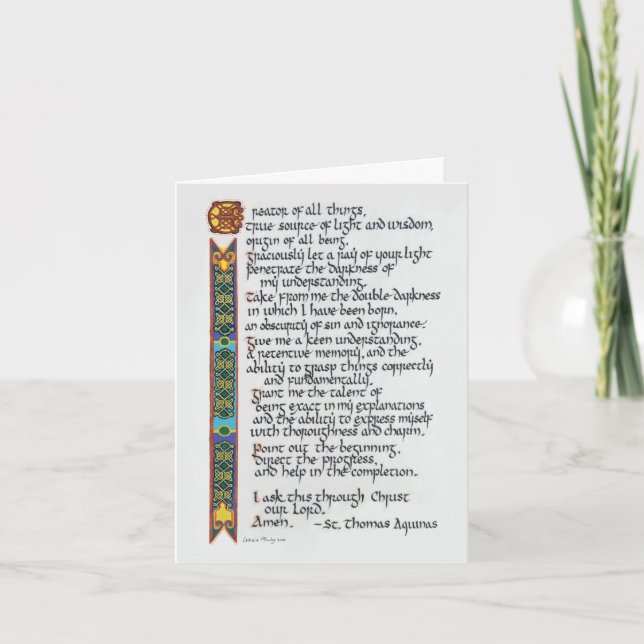 Creator of all things,
true source of light and wisdom,
origin of all being,
graciously let a ray of your light
penetrate the darkness of
my understanding.
Take from me the double darkness
in which I have been born,
an obscurity of sin and ignorance.
Give me a keen understanding,
a retentive memory, and the
ability to grasp things correctly
and fundamentally.
Grant me the talent of
being exact in my explanations
and the ability to express myself
with thoroughness and charm.
Point out the beginning,
Direct the progress,
and help in the completion.
I ask this through Christ
our Lord.
Amen. –St. Thomas Aquinas